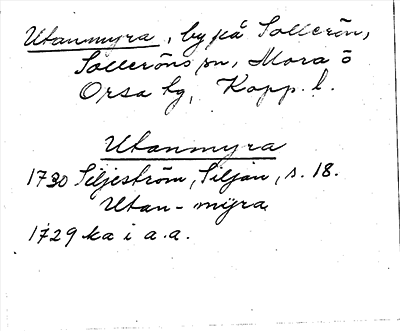 Utanmyra, by på Sollerön,
Solleröns sn, Mora o
Orsa tg, Kopp. l.
Utanmyra
1730 Siljeström, Siljan, s. 18.
Utan-myra
1729 ka i a.a.